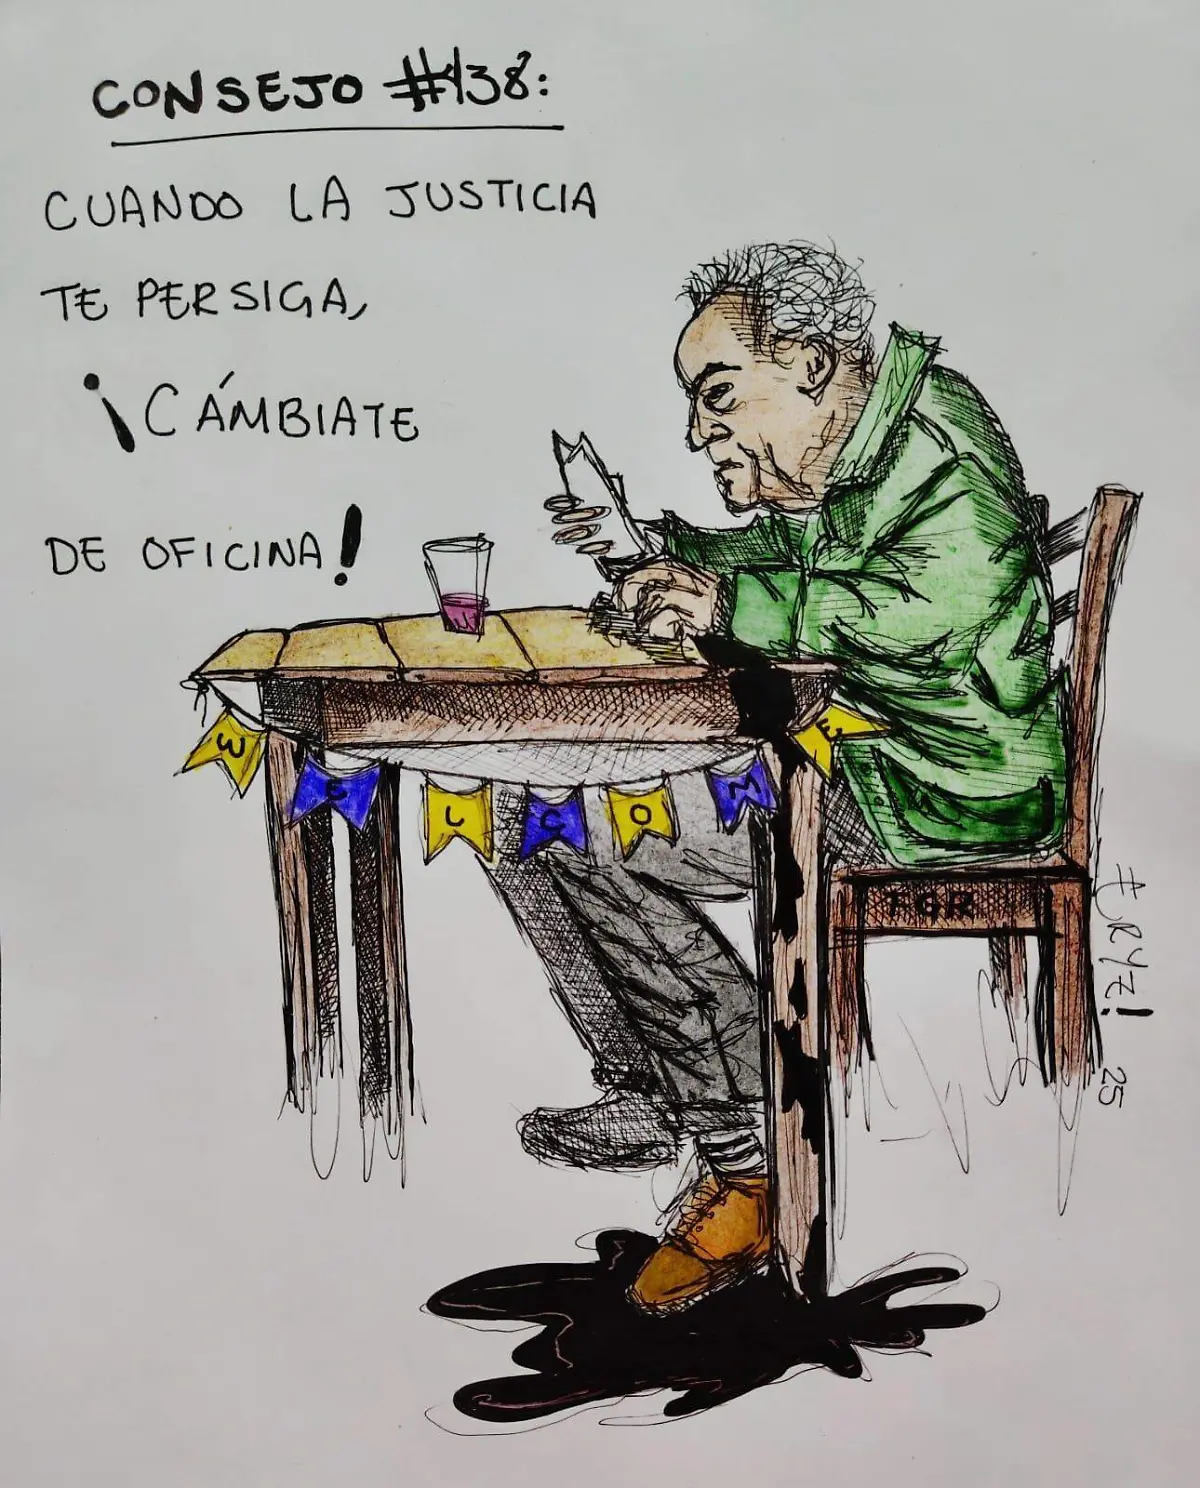 CONSEJO #138:
CUANDO LA JUSTICIA
TE PERSIGA,
¡CÁMBIATE
DE OFICINA!
WELCOME
FGR
25